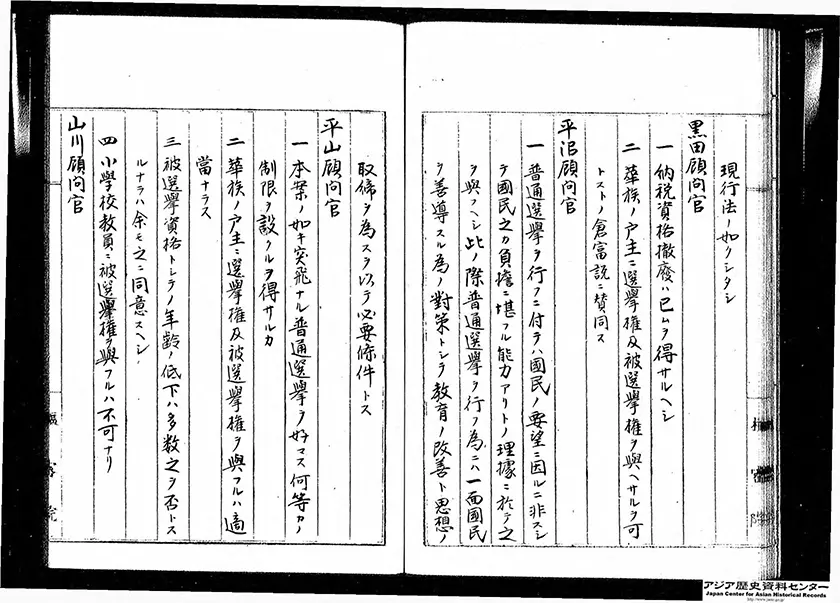 現行法ノ如クシタシ
黒田顧問官
一 納税資格撤廃ハ已ムヲ得サルヘシ
二 華族ノ戸主ニ選擧権及被選擧権ヲ與ヘサルヲ可
トストノ倉富説ニ賛同ス
平沼顧問官
一 普通選擧ヲ行フニ付テハ國民ノ要望ニ因ルニ非スシ
テ國民之カ負擔ニ堪フル能力アリトノ理據ニ於テ之
ヲ與フヘシ此ノ際普通選擧ヲ行フ為ニハ一面國民
ヲ善導スル為ノ對策トシテ教育ノ改善ト思想ノ
取締ヲ為スヲ以テ必要條件トス
平山顧問官
一 本案ノ如キ突飛ナル普通選擧ヲ好マス何等カノ
制限ヲ設クルヲ得サルカ
二 華族ノ戸主ニ選擧権及被選擧権ヲ與フルハ適
當ナラス
三 被選擧資格トシテノ年齢ノ低下ハ多数之ヲ否トス
ルナラハ余モ之ニ同意スヘシ
四 小學校教員ニ被選擧権ヲ與フルハ不可ナリ
山川顧問官
樞密院
アジア歴史資料センター
Japan Center for Asian Historical Records
http://www.jacar.go.jp/